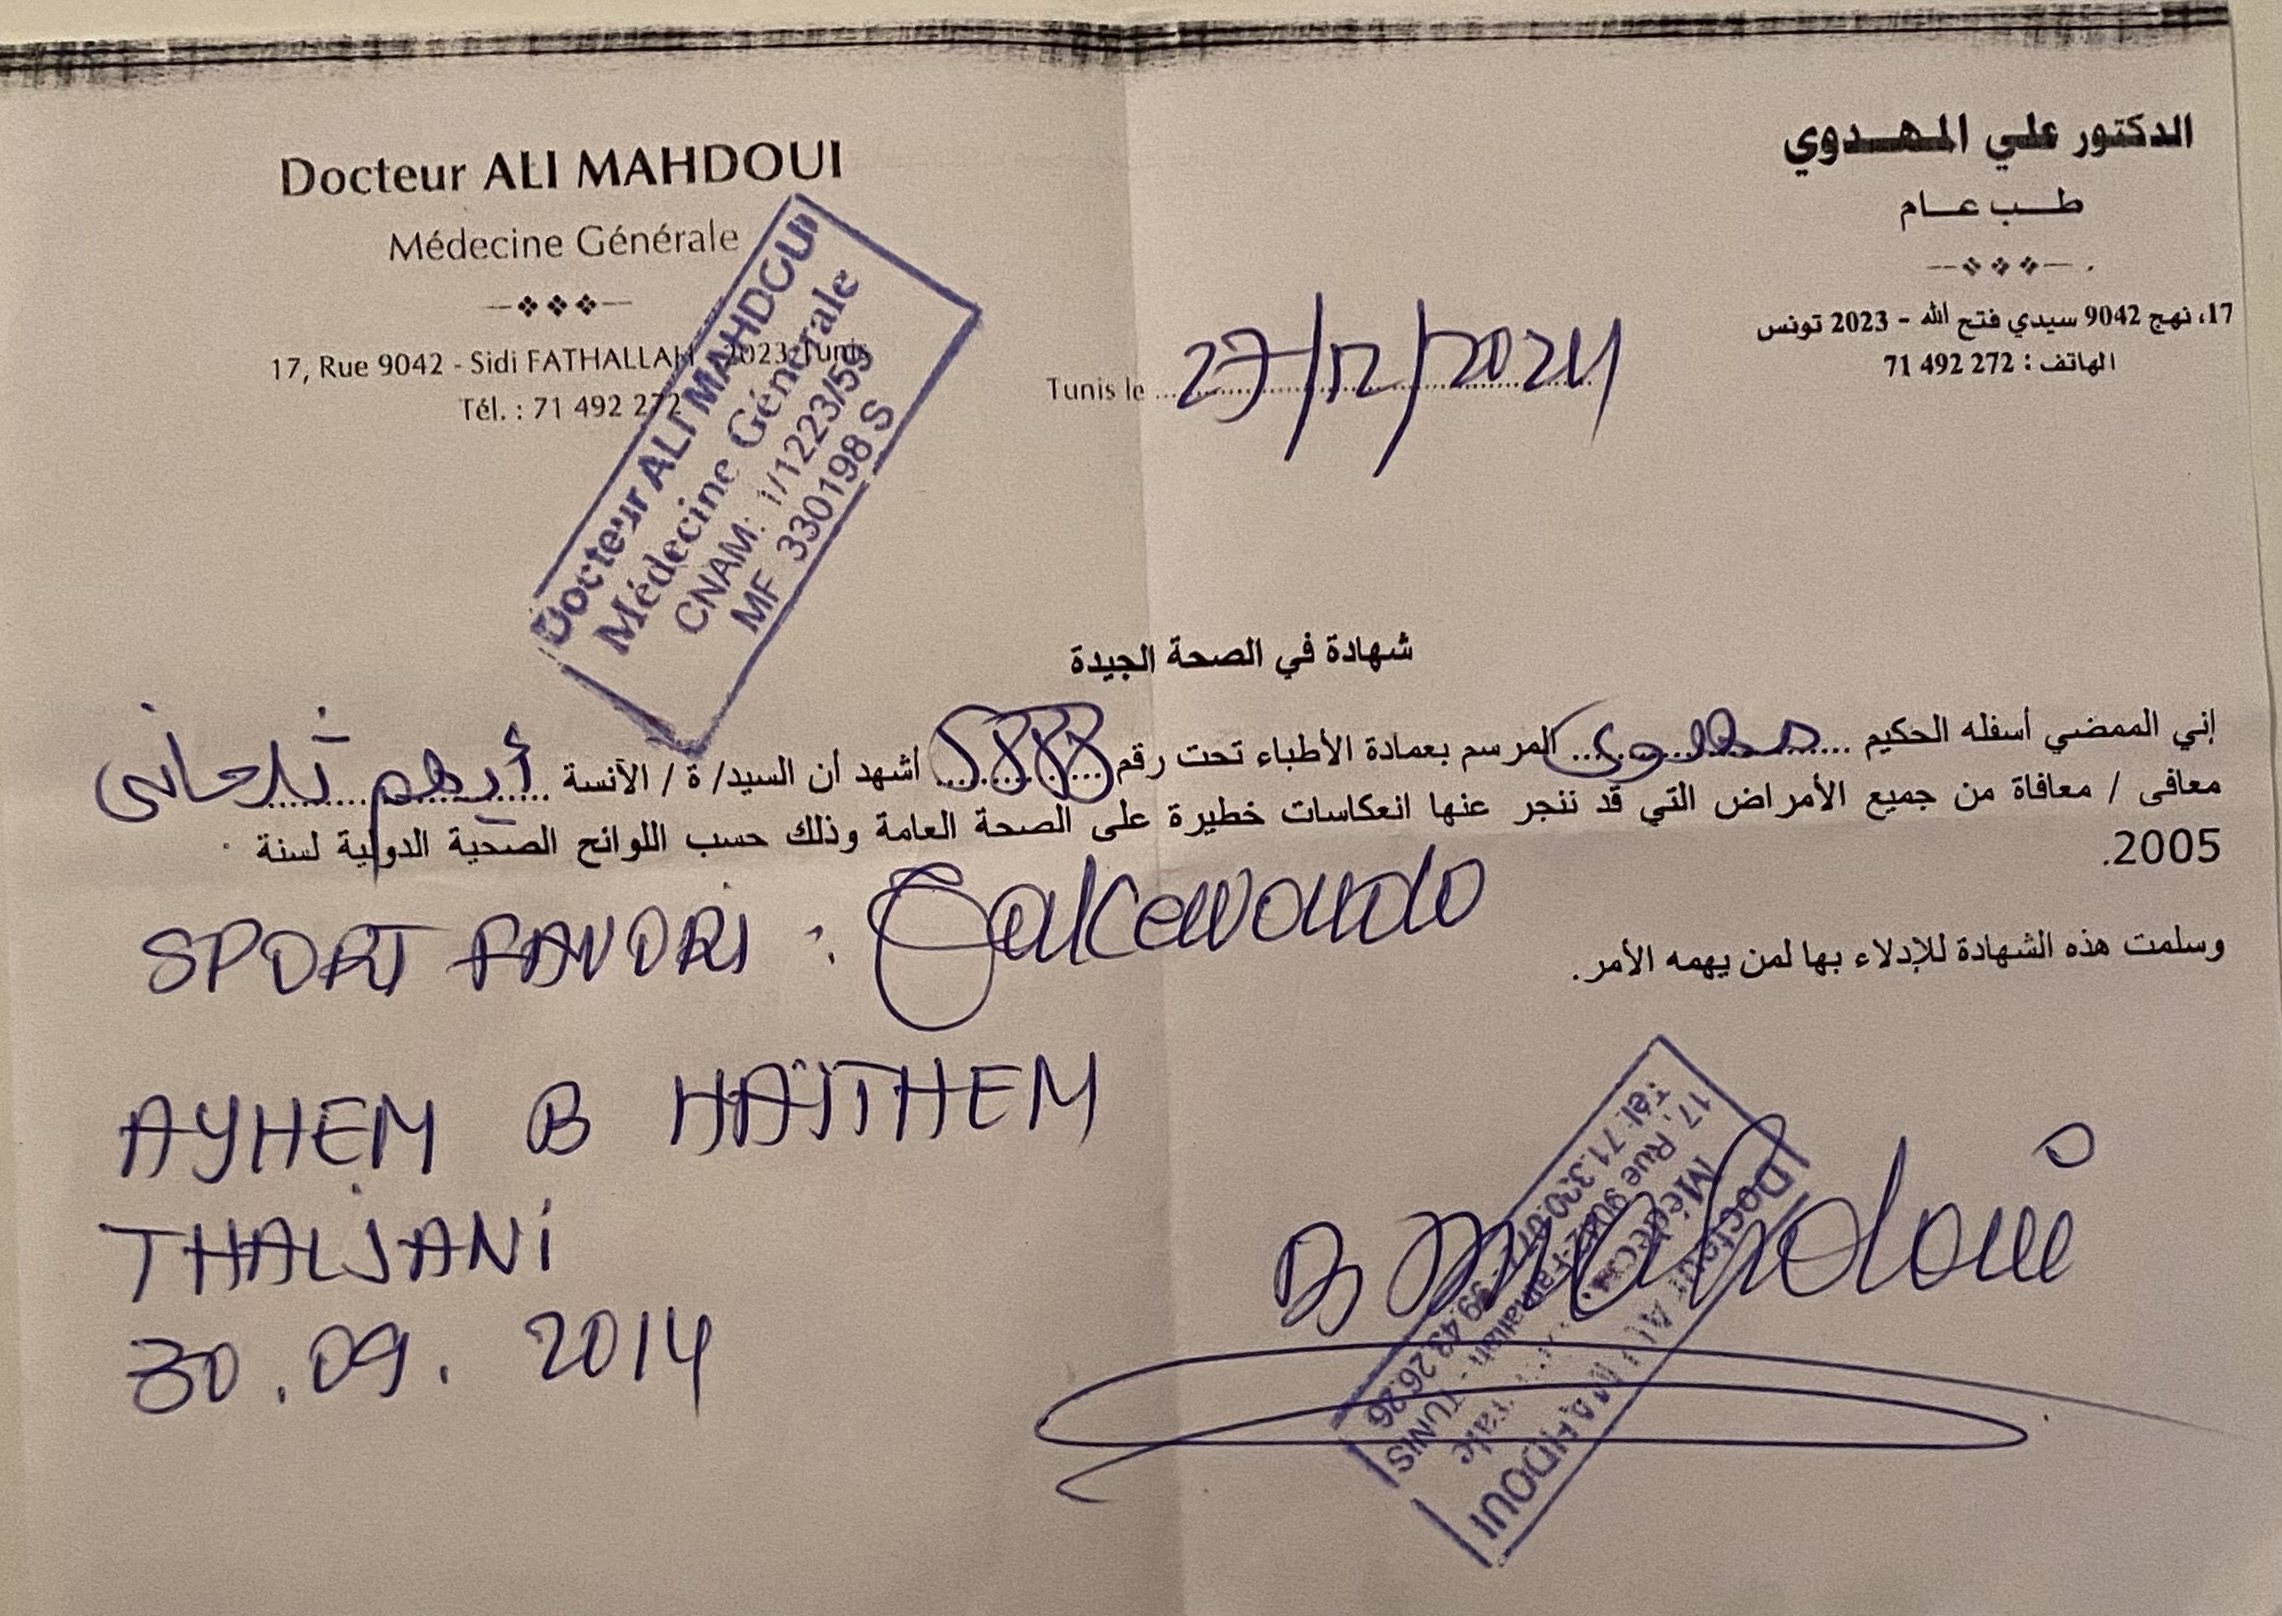 Docteur ALI MAHDOUI
Médecine Générale
17, Rue 9042 - Sidi FATHALLAH - 2023 Tunis
Tél. : 71 492 272
الدكتور علي المهدوي
طب عام
17، نهج 9042 سيدي فتح الله - 2023 تونس
الهاتف : 272 492 71
Docteur ALI MAHDOUI
Médecine Générale
CNAM: 1/1223/59
MF 330198 S
Tunis le 27/12/2024
شهادة في الصحة الجيدة
إني الممضي أسفله الحكيم مهدوي المرسم بعمادة الأطباء تحت رقم أشهد أن السيد/ ة / الآنسة أيهم ثلجاني
معافى / معافاة من جميع الأمراض التي قد ننجر عنها انعكاسات خطيرة على الصحة العامة وذلك حسب اللوائح الصحية الدولية لسنة
2005.
وسلمت هذه الشهادة للإدلاء بها لمن يهمه الأمر.
SPORT FAVORI : Taekewondo
AYHEM B HAÏTHEM
THALJANI
30.09.2014
Dr Mahdoui
Docteur ALI MAHDOUI
17, Rue 9042 Fathallah - TUNIS